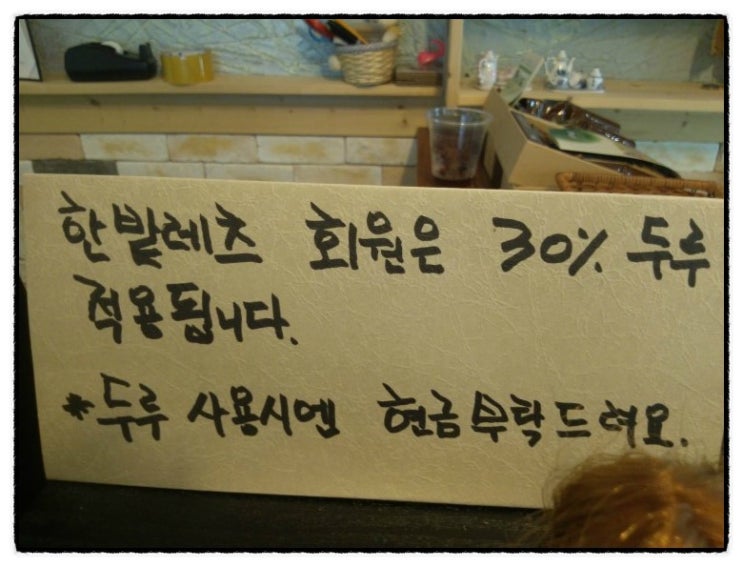 한밭레츠 회원은 30% 두루
적용됩니다.
*두루 사용시엔 현금부탁드려요.